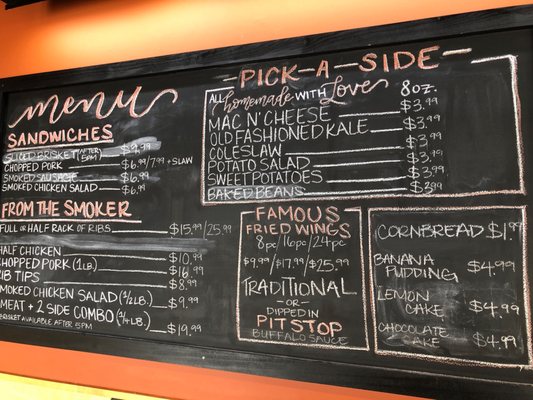 menu
SANDWICHES
SLICED BRISKET (AFTER 5PM) $9.99
CHOPPED PORK $6.99/7.99 +SLAW
SMOKED SAUSAGE $6.99
SMOKED CHICKEN SALAD $6.99
FROM THE SMOKER
FULL OR HALF RACK OF RIBS $15.99/25.99
HALF CHICKEN $10.99
CHOPPED PORK (1LB) $16.99
RIB TIPS $8.99
SMOKED CHICKEN SALAD (1/2LB) $9.99
MEAT + 2 SIDE COMBO $19.99
BRISKET AVAILABLE AFTER 5PM
PICK-A-SIDE
ALL homemade WITH Love 8oz.
MAC N' CHEESE $3.99
OLD FASHIONED KALE $3.99
COLESLAW $3.99
POTATO SALAD $3.99
SWEET POTATOES $3.99
BAKED BEANS $3.99
FAMOUS
FRIED WINGS
8pc/16pc/24pc
$9.99/$17.99/$25.99
TRADITIONAL
-OR-
DIPPED IN
PITSTOP
BUFFALO SAUCE
CORNBREAD $1.99
BANANA
PUDDING $4.99
LEMON
CAKE $4.99
CHOCOLATE
CAKE $4.99